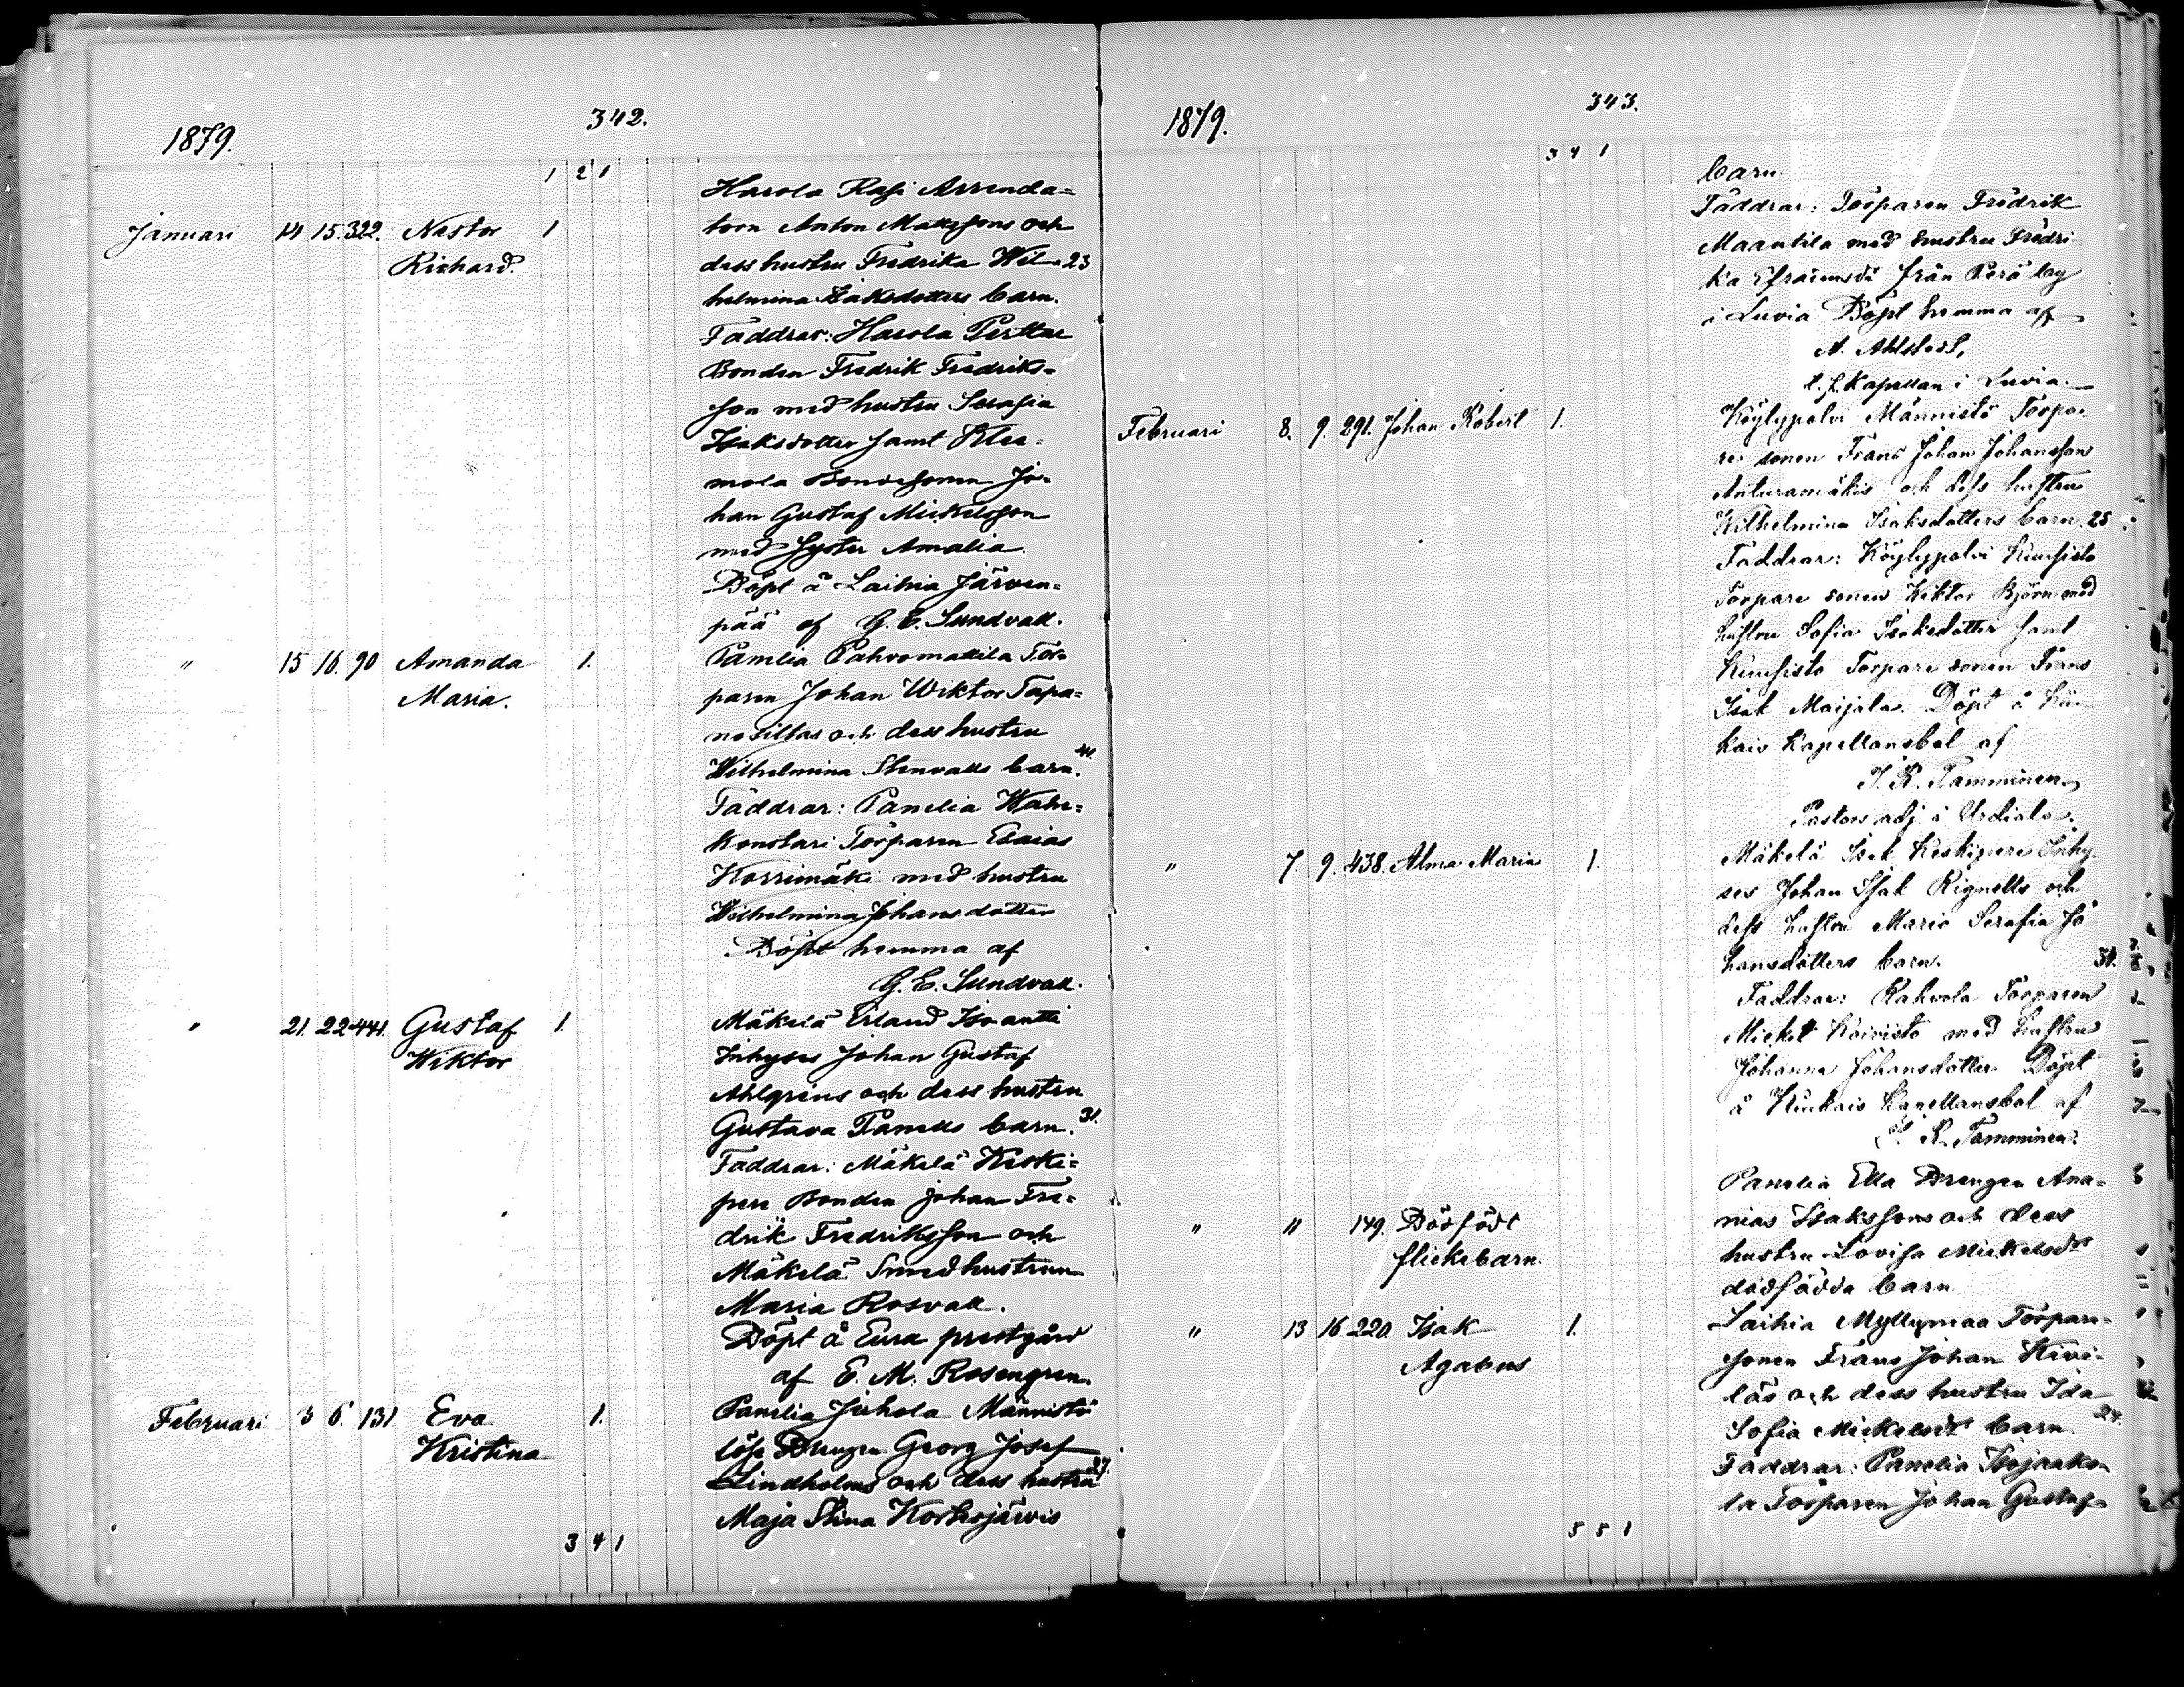 342.
1879.
1 2 1
Harola Rasi Arrenda=
Januari 14 15. 322. Nestor 1 torn Anton Mattssons och
Richard. dess hustru Fredrika Wil= 23
helmina Isaksdotters barn.
Faddrar: Harola Perttu
Bonden Fredrik Fredriks=
son med hustru Serafia
Isaksdotter samt
mola Bondesonen Jo=
han Gustaf Mickelsson
med syster Amalia.
Döpt å Laihia Järven=
pää af G. E. Sundvall.
" 15 16. 90 Amanda 1. Panelia Pahvomattila Tor=
Maria. paren Johan Wiktor Tapa=
nosillas och dess hustru
Wilhelmina Stenvalls barn.
Faddrar: Panelia Wähä=
Konstari Torparen Esaias
Korrimäki med hustru
Wilhelmina Johansdotter
Döpt hemma af
G. E. Sundvall.
" 21. 22 441. Gustaf 1. Mäkelä Erland Isoantti
Wiktor Inhyses Johan Gustaf
Ahlgrens och dess hustru
Gustava Panelius barn. 31.
Faddrar: Mäkelä Keski=
pere Bonden Johan Fre=
drik Fredriksson och
Mäkelä Smedhustrun
Maria Rosvall.
Döpt å Eura prestgård
af E. M. Rosengren.
Februari 3 6. 131. Eva 1. Panelia Juhola Männistö
Kristina löse Drengen Georg Josef
Lindholms och dess hustru 27.
Maja Stina Korkesjärvis
3 4 1
343.
1879.
3 4 1
barn.
Faddrar: Torparen Fredrik
Maantila med hustru Fredri
ka Efraimsdr från Perä by
i Luvia Döpt hemma af
A. Ahlstedt,
t. f. Kapellan i Luvia.
Februari 8. 9. 291. Johan Robert 1. Köylypolvi Männistö Torpa=
re sonen Frans Johan Johansson
Anturamäkis och dess hustru
Wilhelmina Isaksdotters barn. 25
Faddrar: Köylypolvi Kuusisto
Torpare sonen Wiktor Björn med
hustru Sofia Isaksdotter samt
Kuusisto Torpare sonen Frans
Isak Maijala. Döpt å Kiu=
kais Kapellansbol af
J. R. Tamminen,
Pastors adj. i Urdiala.
" 7. 9. 438. Alma Maria 1. Mäkelä Isak Keskipere Inhy=
ses Johan Isak Rignells och
dess hustru Maria Serafia Jo
hansdotters barn. 31.
Faddrar: Rahvola Torparen
Mickel Koivisto med hustru
Johanna Johansdotter. Döpt
å Kiukais Kapellansbol af
J. R. Tamminen.
Panelia Ella Drengen Ana=
" " 149. Dödfödt nias Isakssons och dess
flickebarn. hustru Lovisa Mickelsdrs
dödfödda barn
" 13 16 220. Isak 1. Laihia Myllymaa Torpare=
Agabus sonen Frans Johan Kivi=
läs och dess hustru Ida
Sofia Mickelsdrs barn. 24.
Faddrar: Panelia Isojaakko=
la Torparen Johan Gustaf
5 5 1